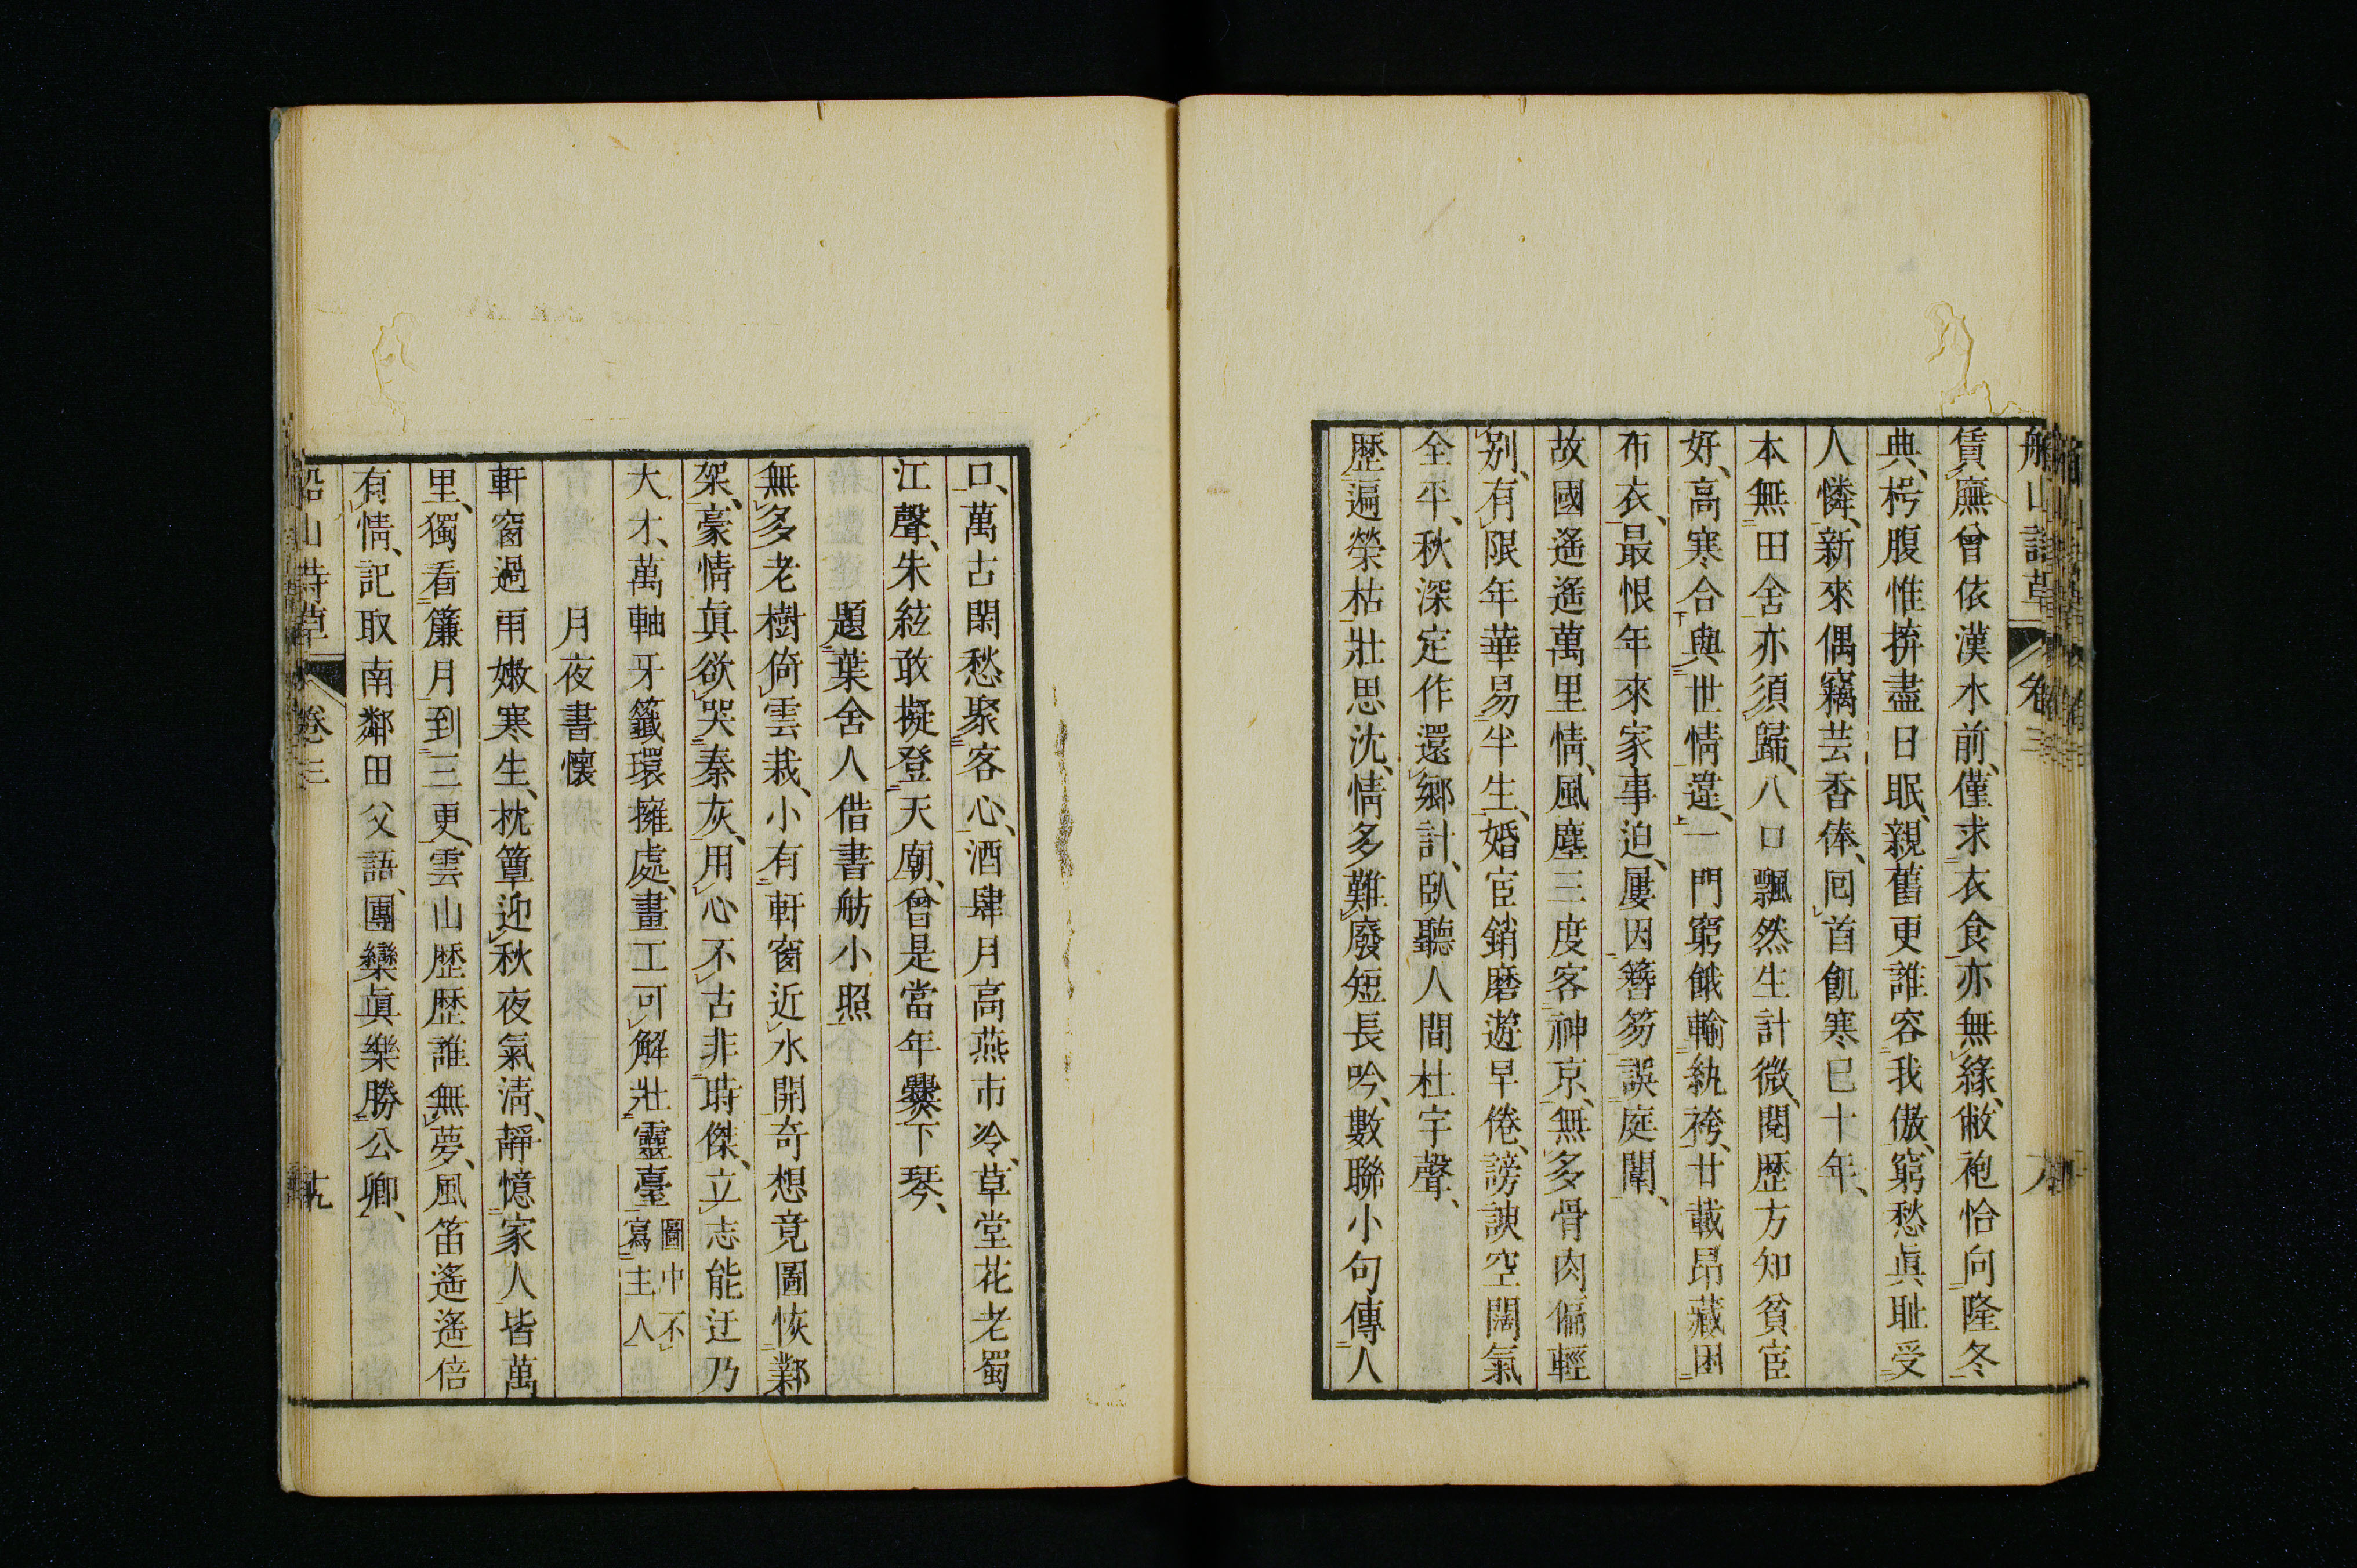 船山詩草 卷三
賃廡曾依漢水前、僅求衣食亦無緣、敝袍恰向隆冬
典、枵腹惟拚盡日眠、親舊更誰容我傲、窮愁眞耻受
人憐、新來偶竊芸香俸、囘首飢寒已十年、
本無田舍亦須歸、八口飄然生計微、閱歴方知貧宦
好、高寒合與世情違、一門窮餓輸紈袴、廿載昂藏困
布衣、最恨年來家事迫、屢因簪笏誤庭闈、
故國遙遙萬里情、風塵三度客神京、無多骨肉偏輕
別、有限年華易半生、婚宦銷磨遊早倦、謗諛空闊氣
全平、秋深定作還鄉計、臥聽人間杜宇聲、
歴遍榮枯壯思沈、情多難廢短長吟、數聯小句傳人
口、萬古閑愁聚客心、酒肆月高燕市冷、草堂花老蜀
江聲、朱絃敢擬登天廟、曾是當年爨下琴、
題葉舍人借書舫小照
無多老樹倚雲栽、小有軒窗近水開、奇想竟圖恢鄴
架、豪情眞欲哭秦灰、用心不古非時傑、立志能迂乃
大才、萬軸牙籤環擁處、畫工可解壯靈臺 圖中不寫主人
月夜書懷
軒窗過雨嫩寒生、枕簟迎秋夜氣清、靜憶家人皆萬
里、獨看簾月到三更、雲山歴歴誰無夢、風笛遙遙倍
有情、記取南鄰田父語、團欒眞樂勝公卿、
船山詩草 卷三 十九